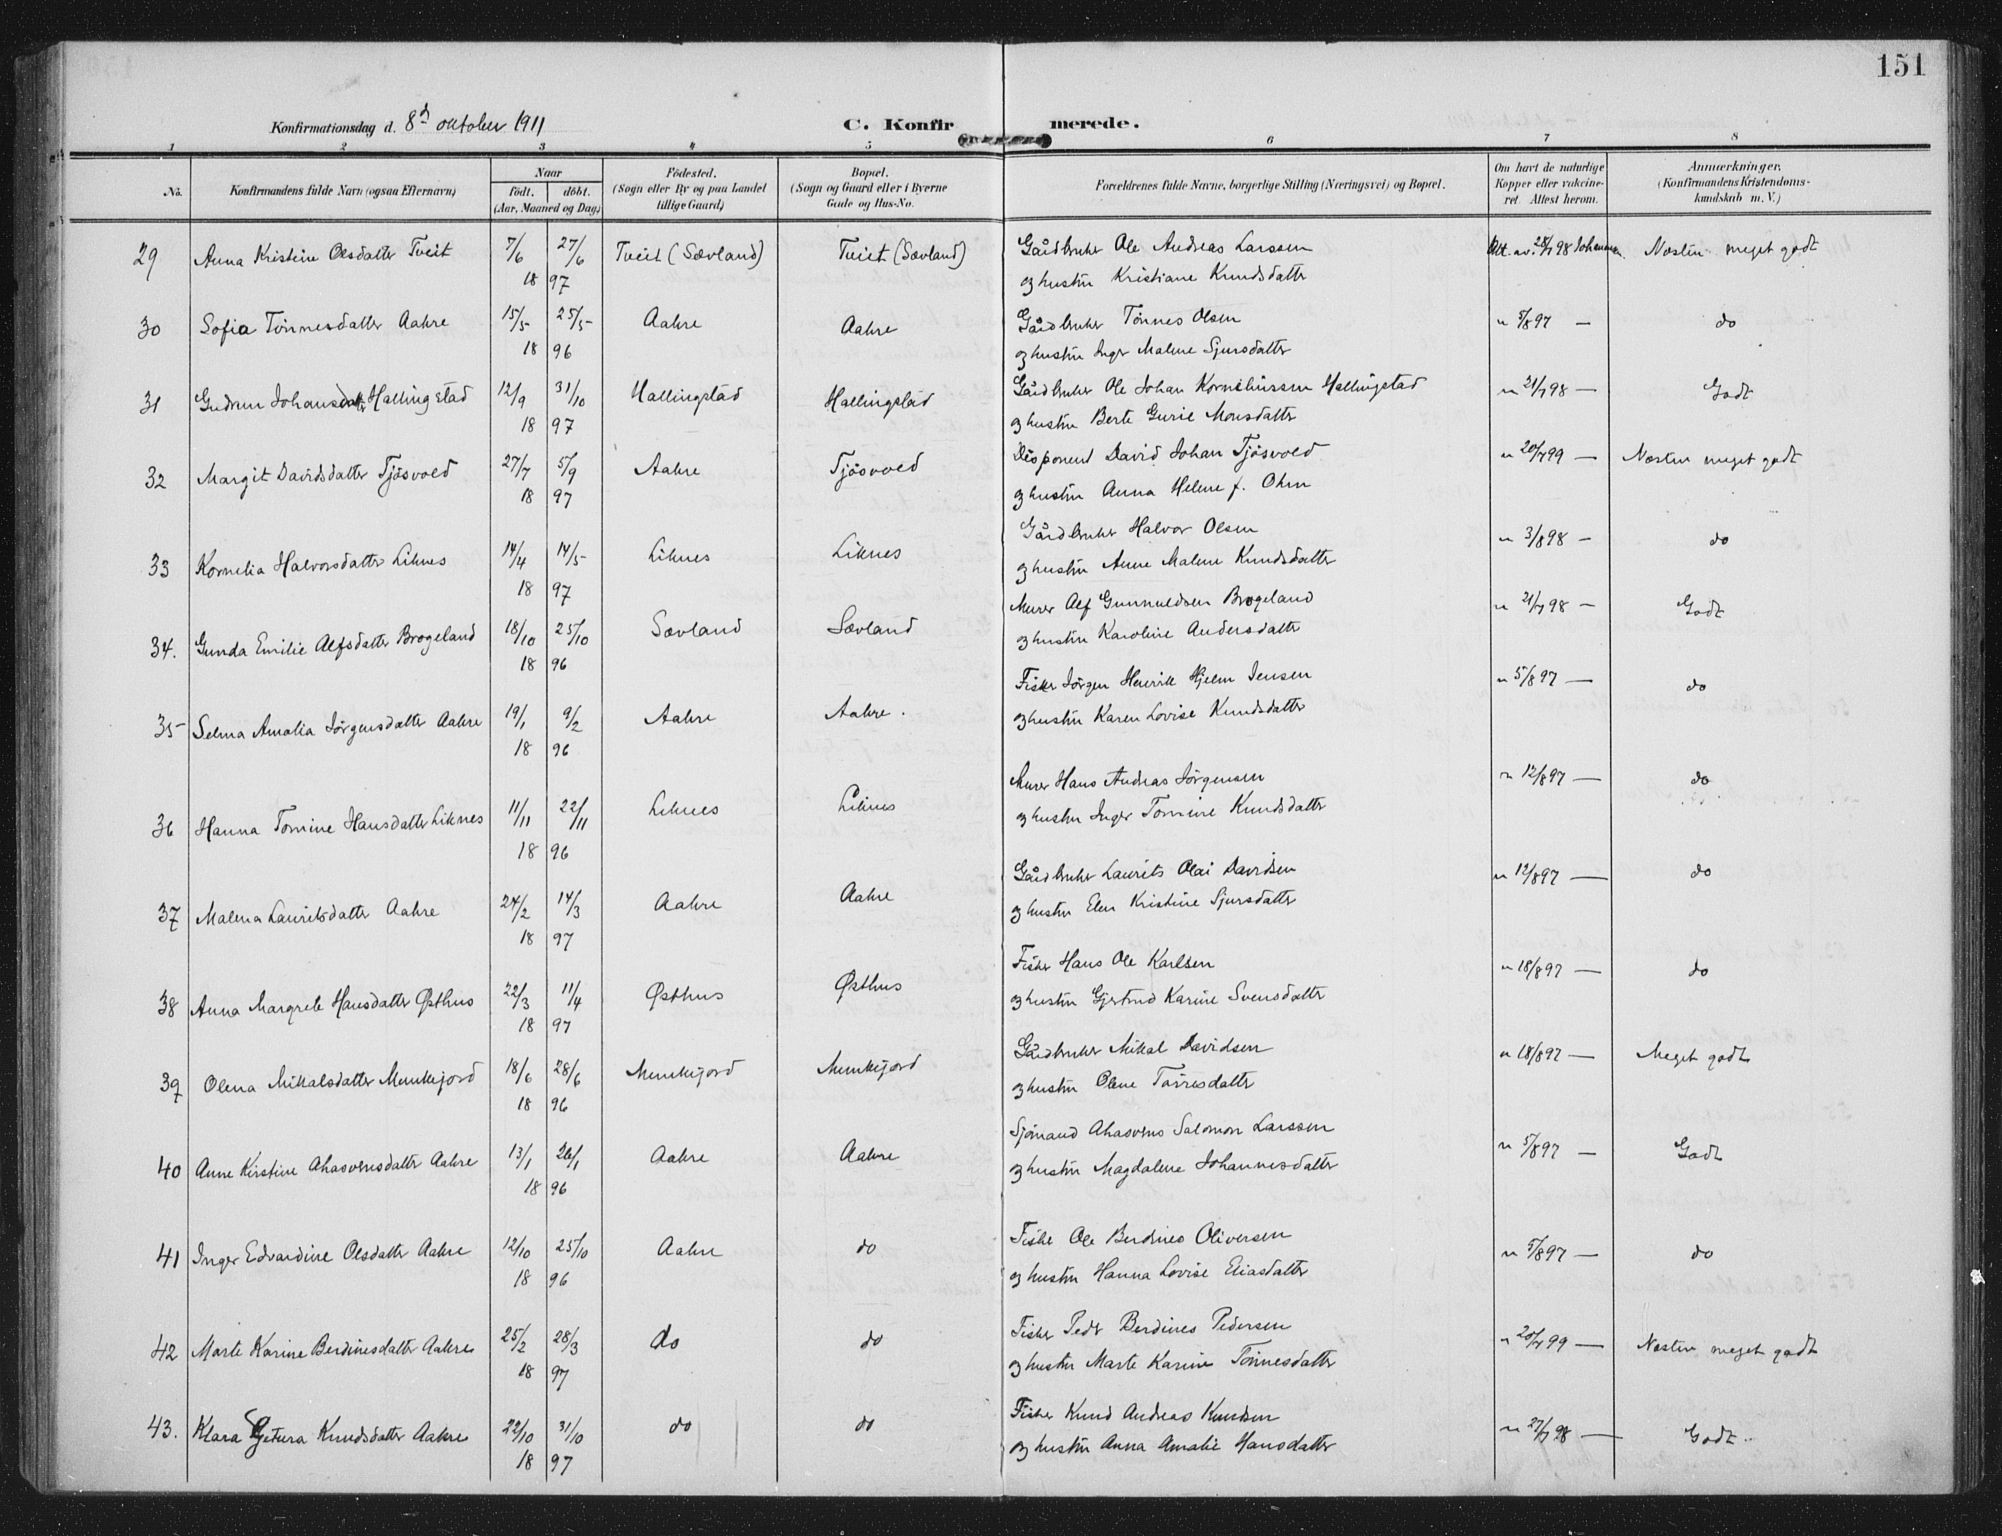 151
Konfirmationsdag d. 8d oktober 1911
C. Konfirmerede.
1 2 3 4 5 6 7 8
No. Konfirmandens fulde Navn (ogsaa Efternavn) Naar født. døbt. (Aar, Maaned og Dag) Fødested. (Sogn eller By og paa Landet tillige Gaard) Bopæl. (Sogn og Gaard eller i Byerne Gade og Hus-No. Forældrenes fulde Navne, borgerlige Stilling (Næringsvei) og Bopæl. Om havt de naturlige Kopper eller vakcineret. Attest herom. Anmærkninger. (Konfirmandens Kristendomskundskab m. V.)
29 Anna Kristine Olsdatter Tveit 7/6 27/6 18 97 Tveit (Sævland) Tveit (Sævland) Gårdbruker Ole Andreas Larssen Att. av. 28/7 98 Johannesen. Næsten meget godt
og hustru Kristiane Knudsdatter
30 Sofia Tönnesdatter Aakre 15/5 25/5 18 96 Aakre Aakre Gårdbruker Tönnes Olsen " 5/8 97 — do
og hustru Inger Malene Sjursdatter
31 Gudrun Johansdatter Hallingstad 12/9 31/10 18 97 Hallingstad Hallingstad Gårdbruker Ole Johan Kornelius­sen Hallingstad " 21/7 98 — Godt
og hustru Berte Gurie Monsdatter
32 Margit Davidsdatter Tjösvold 27/7 5/9 18 97 Aakre Tjösvold Disponent David Johan Tjösvold " 20/7 99 — Næsten meget godt
og hustru Anna Helene f. Ohm
33 Kornelia Halvorsdatter Liknes 14/4 14/5 18 97 Liknes Liknes Gårdbruker Halvor Olsen " 3/8 98 — do
og hustru Anne Malene Knudsdatter
34. Gunda Emilie Alfsdatter Brogeland 18/10 25/10 18 96 Sævland Sævland Murer Alf Gunnuldsen Brogeland " 21/7 98 — Godt
og hustru Karoline Andersdatter
35 Selma Amalia Jörgensdatter Aakre 19/1 9/2 18 96 Aakre Aakre. Fisker Jörgen Henrik Hjelm Jensen " 5/8 97 — do
og hustru Karen Lovise Knudsdatter
36 Hanna Tomine Hansdatter Liknes 11/11 22/11 18 96 Liknes Liknes Murer Hans Andreas Jörgensen " 12/8 97 — do
og hustru Inger Tomine Knudsdatter
37 Malena Lauritsdatter Aakre 24/2 14/3 18 97 Aakre Aakre Gårdbruker Laurits Olai Davidsen " 12/8 97 — do
og hustru Elen Kristine Sjursdatter
38 Anna Margrete Hansdatter Østhus 22/3 11/4 18 97 Østhus Østhus Fisker Hans Ole Karlsen " 18/8 97 — do
og hustru Gjertrud Karine Svensdatter
39 Olena Mikalsdatter Munkejord 18/6 28/6 18 96 Munkejord Munkejord Gårdbruker Mikal Davidsen " 18/8 97 — Meget godt
og hustru Olene Torresdatter
40 Anne Kirstine Ahasverusdatter Aakre 13/1 26/1 18 96 Aakre Aakre Sjömand Ahasverus Salomon Larssen " 5/8 97 — Godt
og hustru Magdalene Johannesdatter
41 Inger Edvardine Olsdatter Aakre 12/10 25/10 18 96 Aakre do Fisker Ole Berdines Oliversen " 5/8 97 — do
og hustru Hanna Lovise Eliasdatter
42 Marte Karine Berdinesdatter Aakre 25/2 28/3 18 97 do do Fisker Peder Berdines Pedersen " 20/7 99 — Næsten meget godt
og hustru Marte Karine Tönnesdatter
43. Klara Getura Knudsdatter Aakre 22/10 31/10 18 97 do do Fisker Knud Andreas Knudsen " 27/7 98 — Godt.
og hustru Anna Amalie Hansdatter